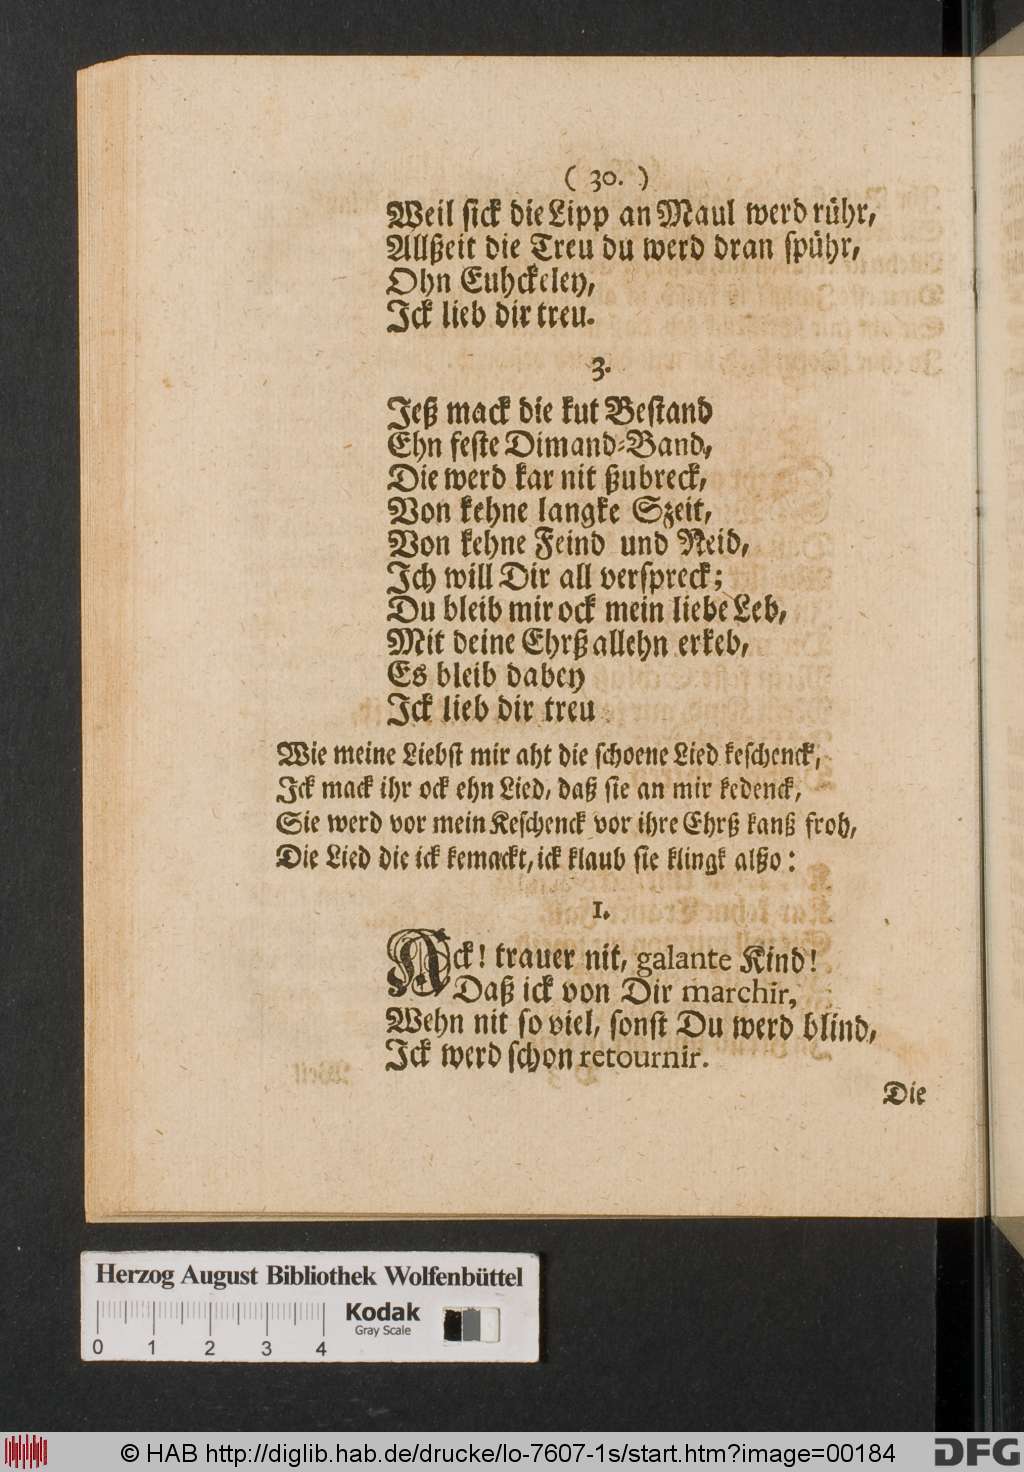 ( 30. )
Weil sick die Lipp an Maul werd rühr,
Allßeit die Treu du werd dran spühr,
Ohn Euhckeley,
Ick lieb dir treu.
3.
Jeß mack die kut Bestand
Ehn feste Dimand-Band,
Die werd kar nit ßubreck,
Von kehne langke Szeit,
Von kehne Feind und Neid,
Ich will Dir all verspreck;
Du bleib mir ock mein liebe Leb,
Mit deine Ehrß allehn erkeb,
Es bleib dabey
Ick lieb dir treu
Wie meine Liebst mir aht die schoene Lied keschenck,
Ick mack ihr ock ehn Lied, daß sie an mir kedenck,
Sie werd vor mein Keschenck vor ihre Ehrß kanß froh,
Die Lied die ick kemackt, ick klaub sie klingk alßo:
1.
Ack! trauer nit, galante Kind!
Daß ick von Dir marchir,
Wehn nit so viel, sonst Du werd blind,
Ick werd schon retournir.
Die
Herzog August Bibliothek Wolfenbüttel
Kodak
Gray Scale
0 1 2 3 4
© HAB http://diglib.hab.de/drucke/lo-7607-1s/start.htm?image=00184
DFG